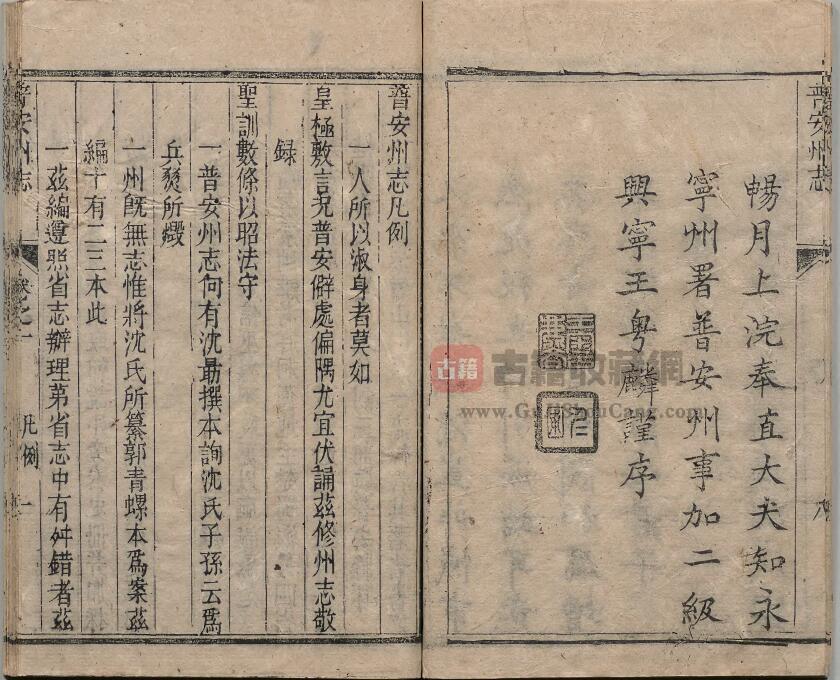 普安州志
暢月上浣奉直大夫知永
寧州署普安州事加二級
興寧王粵麟謹序
古籍
古籍收藏網
www.GuJiShouCang.com
普安州志凡例
一人所以淑身者莫如
皇極敷言況普安僻處偏隅尤宜伏誦茲修州志敬
録
聖訓數條以昭法守
一普安州志向有沈勗撰本詢沈氏子孫云爲
兵燹所燬
一州旣無志惟將沈氏所纂郭青螺本爲案茲
編十有二三本此
一茲編遵照省志辦理苐省志中有舛錯者茲
普安州志
卷之一
凡例
一